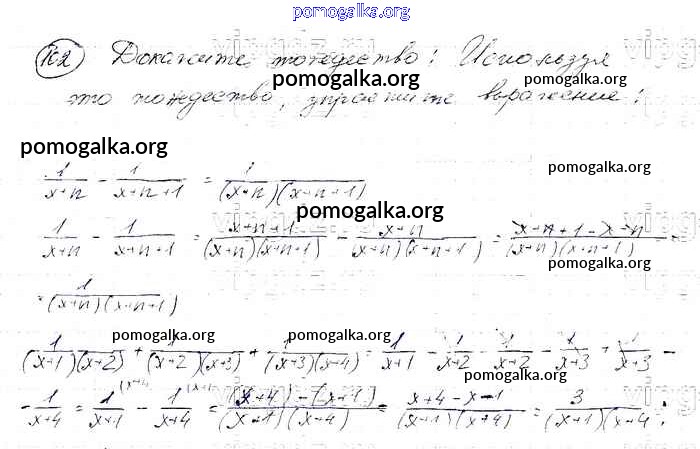 pomogalka.org
162 Докажите тождество: Используя
pomogalka.org
это тождество, упростите выражение:
pomogalka.org
pomogalka.org
1/(x+n) - 1/(x+n+1) = 1/((x+n)(x+n+1))
pomogalka.org
1/(x+n) - 1/(x+n+1) = (x+n+1)/((x+n)(x+n+1)) - (x+n)/((x+n)(x+n+1)) = (x+n+1-x-n)/((x+n)(x+n+1)) =
pomogalka.org
= 1/((x+n)(x+n+1))
pomogalka.org pomogalka.org pomogalka.org
1/((x+1)(x+2)) + 1/((x+2)(x+3)) + 1/((x+3)(x+4)) = 1/(x+1) - 1/(x+2) - 1/(x+2) - 1/(x+3) + 1/(x+3) -
pomogalka.org
- 1/(x+4) = 1/(x+1) - 1/(x+4) = ((x+4)-(x+1))/((x+1)(x+4)) = (x+4-x-1)/((x+1)(x+4)) = 3/((x+1)(x+4));